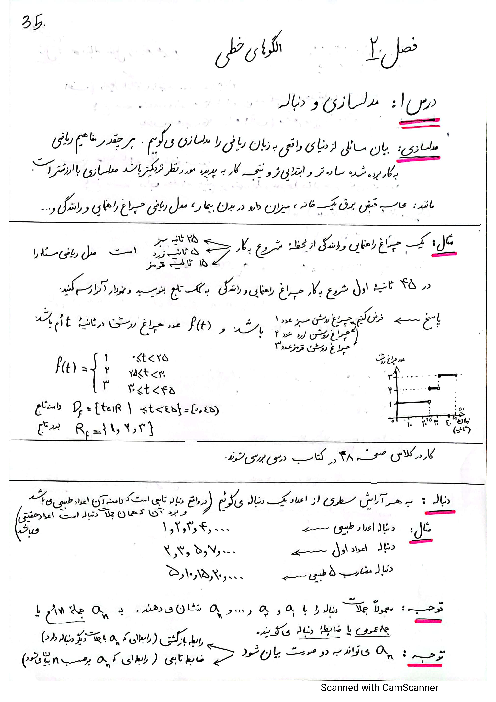 35.
فصل ۲. الگوهای خطی
درس ۱: مدلسازی و دنباله
مدلسازی: بیان مسائلی از دنیای واقعی به زبان ریاضی را مدلسازی می‌گوییم. هر چقدر مفاهیم ریاضی
به کار برده شده ساده تر و ابتدایی تر و نتیجه کار به پدیده مورد نظر نزدیکتر باشد مدلسازی با ارزشتر است.
مانند: محاسبه قبض برق یک خانه، میزان دارو در بدن بیمار، مدل ریاضی چراغ راهنمایی و رانندگی و...
مثال: یک چراغ راهنمایی و رانندگی از لحظهٔ شروع به کار ۲۵ ثانیه سبز ۵ ثانیه زرد ۱۵ ثانیه قرمز است مدل ریاضی مسئله را
در ۴۵ ثانیهٔ اول شروع به کار چراغ راهنمایی و رانندگی به کمک تابع بنویسید و نمودار آن را رسم کنید.
پاسخ ← فرض کنیم چراغ روشن سبز عدد ۱
چراغ روشن زرد عدد ۲
چراغ روشن قرمز عدد ۳
باشد و f(t) عدد چراغ روشن در ثانیهٔ t ام باشد
f(t) = { ۱ ۰≤t<۲۵
۲ ۲۵≤t<۳۰
۳ ۳۰≤t<۴۵
دامنه تابع D_f = {t∈IR | ۰≤t<۴۵} = [۰,۴۵)
برد تابع R_f = {۱, ۲, ۳}
کار در کلاس صفحه ۴۸ در کتاب درسی بررسی شود.
دنباله: به هر آرایش سطری از اعداد یک دنباله می‌گوئیم (در واقع دنباله تابعی است که دامنه آن اعداد طبیعی می‌باشد
و برد آن که همان جملات دنباله است اعداد حقیقی می‌باشد)
مثال: دنباله اعداد طبیعی ← ۱, ۲, ۳, ۴, ...
دنباله اعداد اول ← ۲, ۳, ۵, ۷, ...
دنباله مضارب ۵ طبیعی ← ۵, ۱۰, ۱۵, ۲۰, ...
توجه: معمولاً جملات دنباله را با a₁ و a₂ و ... و aₙ نشان می‌دهند. به aₙ جملهٔ nام یا
جمله عمومی یا ضابطهٔ دنباله می‌گویند.
توجه: aₙ می‌تواند به دو صورت بیان شود رابطه بازگشتی (رابطه‌ای که aₙ با جملات دیگر دنباله دارد)
ضابطه تابعی (رابطه‌ای که aₙ برحسب n بیان می‌شود)
Scanned with CamScanner